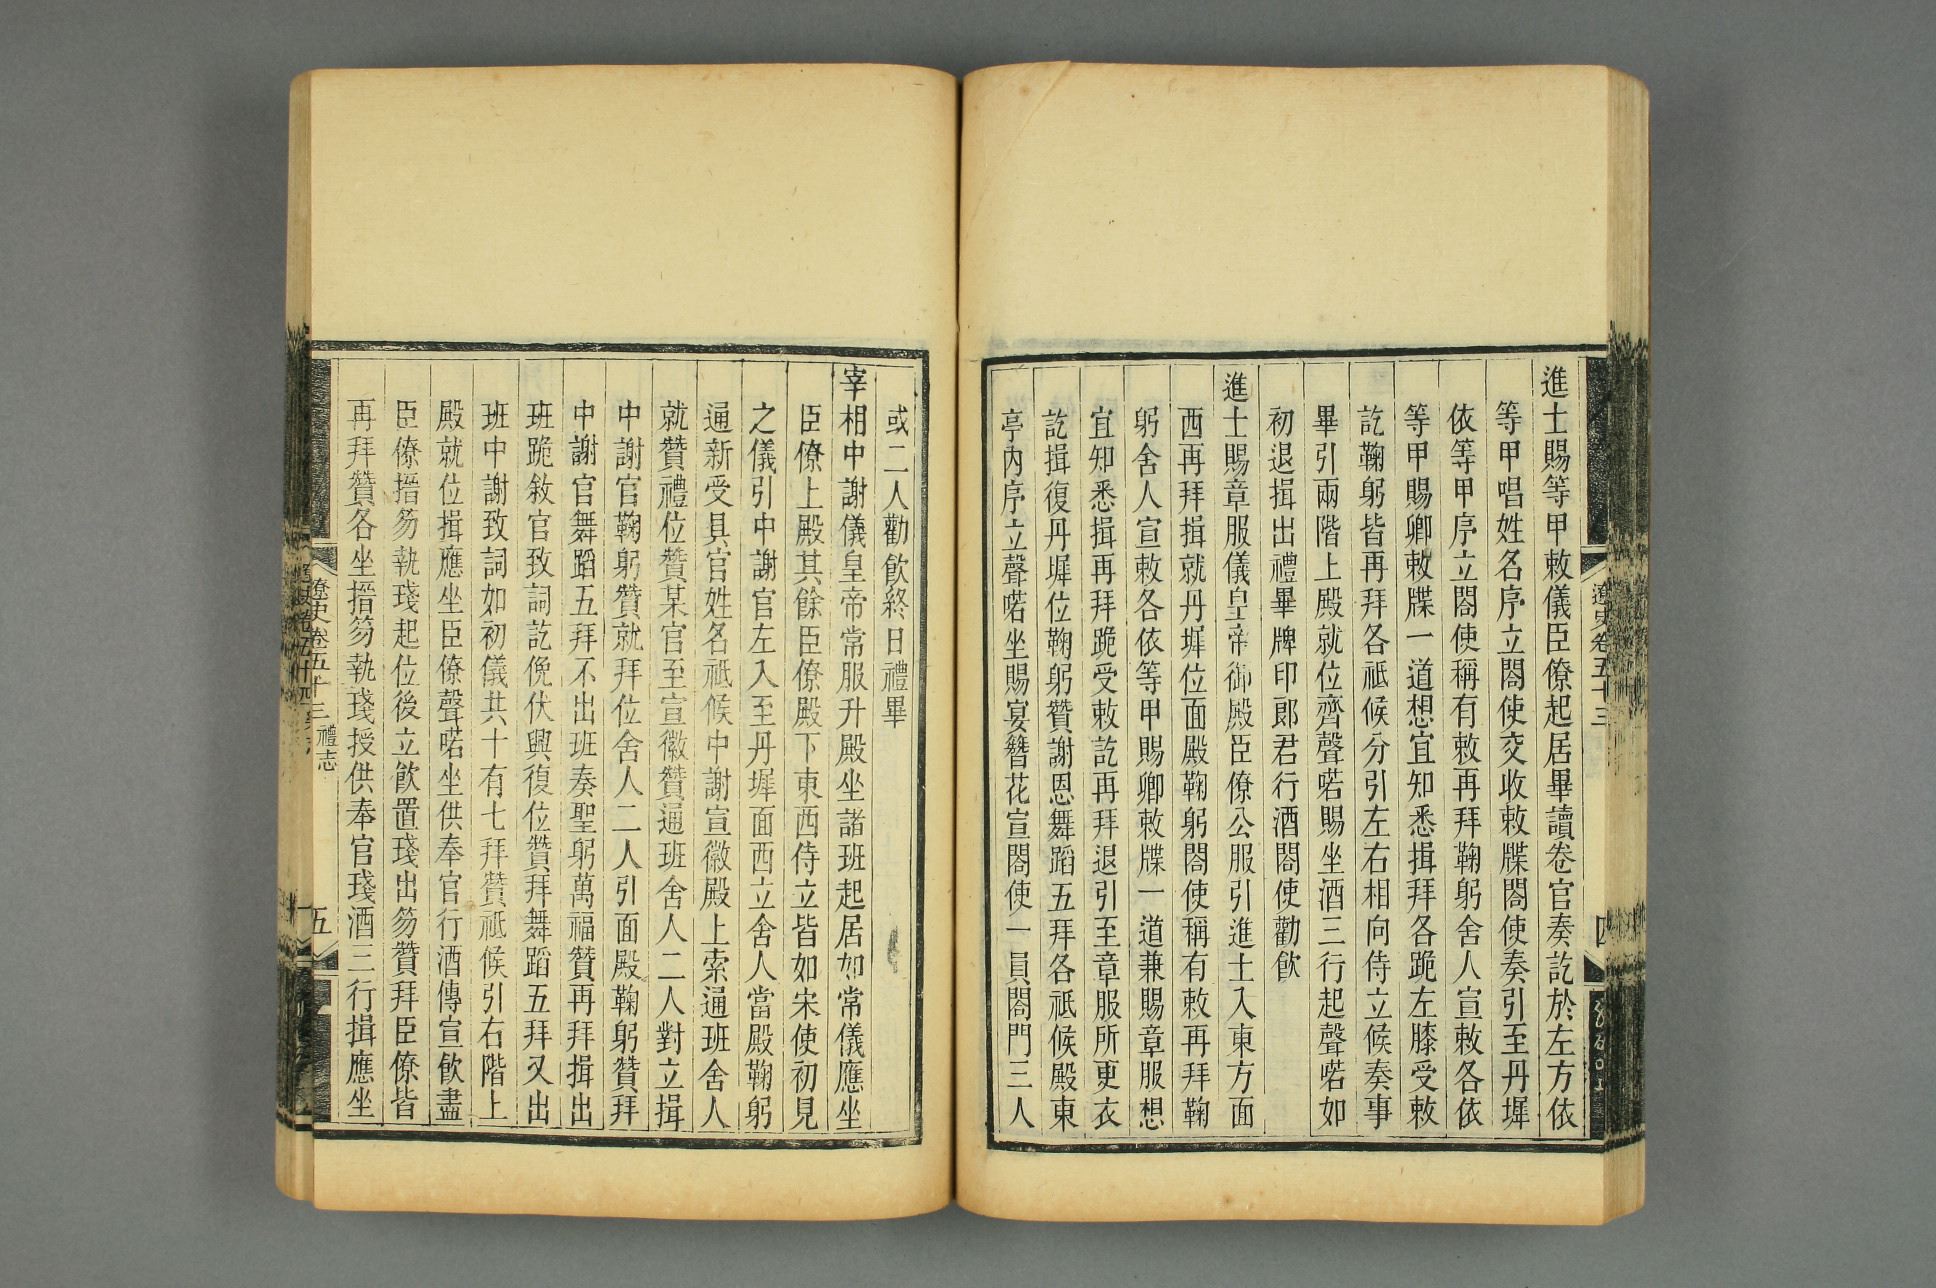 進士賜等甲敕儀臣僚起居畢讀卷官奏訖於左方依
等甲唱姓名序立閤使交收敕牒閤使奏引至丹墀
依等甲序立閤使稱有敕再拜鞠躬舍人宣敕各依
等甲賜卿敕牒一道想宜知悉揖拜各跪左膝受敕
訖鞠躬皆再拜各祗候分引左右相向侍立候奏事
畢引兩階上殿就位齊聲喏賜坐酒三行起聲喏如
初退揖出禮畢牌印郎君行酒閤使勸飲
進士賜章服儀皇帝御殿臣僚公服引進士入東方面
西再拜揖就丹墀位面殿鞠躬閤使稱有敕再拜鞠
躬舍人宣敕各依等甲賜卿敕牒一道兼賜章服想
宜知悉揖再拜跪受敕訖再拜退引至章服所更衣
訖揖復丹墀位鞠躬贊謝恩舞蹈五拜各祗候殿東
亭內序立聲喏坐賜宴簪花宣閤使一員閤門三人
遼史卷五十三
四
或二人勸飲終日禮畢
宰相中謝儀皇帝常服升殿坐諸班起居如常儀應坐
臣僚上殿其餘臣僚殿下東西侍立皆如宋使初見
之儀引中謝官左入至丹墀面西立舍人當殿鞠躬
通新受具官姓名祗候中謝宣徽殿上索通班舍人
就贊禮位贊某官至宣徽贊通班舍人二人對立揖
中謝官鞠躬贊就拜位舍人二人引面殿鞠躬贊拜
中謝官舞蹈五拜不出班奏聖躬萬福贊再拜揖出
班跪敘官致詞訖俛伏興復位贊拜舞蹈五拜又出
班中謝致詞如初儀共十有七拜贊祗候引右階上
殿就位揖應坐臣僚聲喏坐供奉官行酒傳宣飲盡
臣僚搢笏執琖起位後立飲置琖出笏贊拜臣僚皆
再拜贊各坐搢笏執琖授供奉官琖酒三行揖應坐
遼史卷五十三 禮志
五